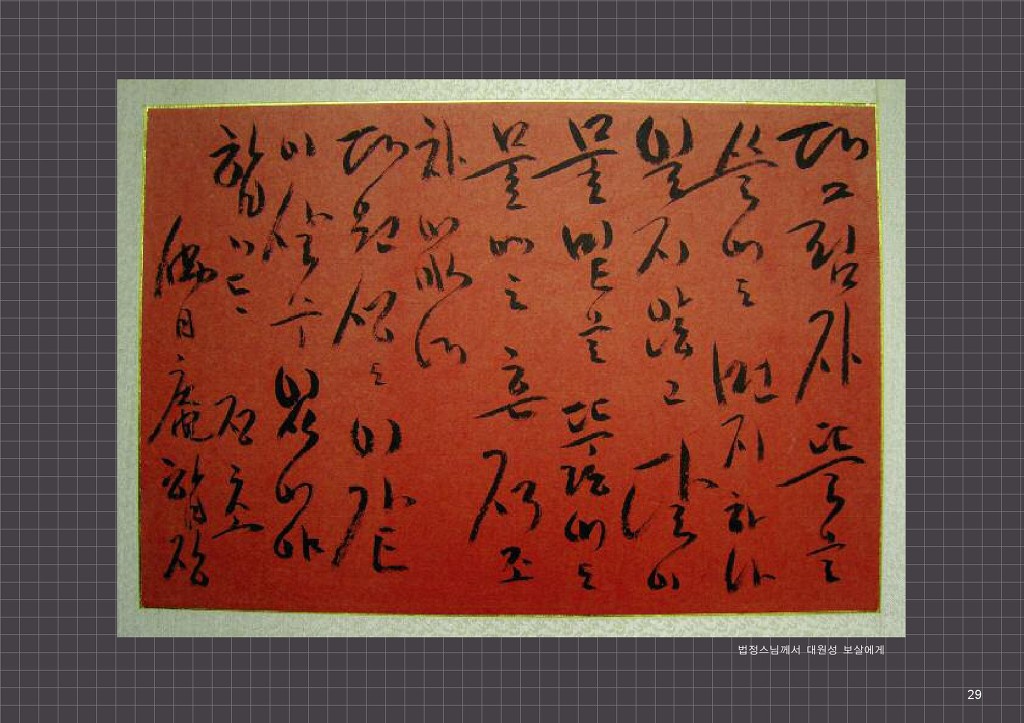 대그림자 뜰을
쓸어도 먼지 하나
일지 않고 달이
물 밑을 뚫어도
물에는 흔적조
차 없네
대원성도 이같
이 살 수 있어야
합니다 정초
佛日庵 합장
법정스님께서 대원성 보살에게
29